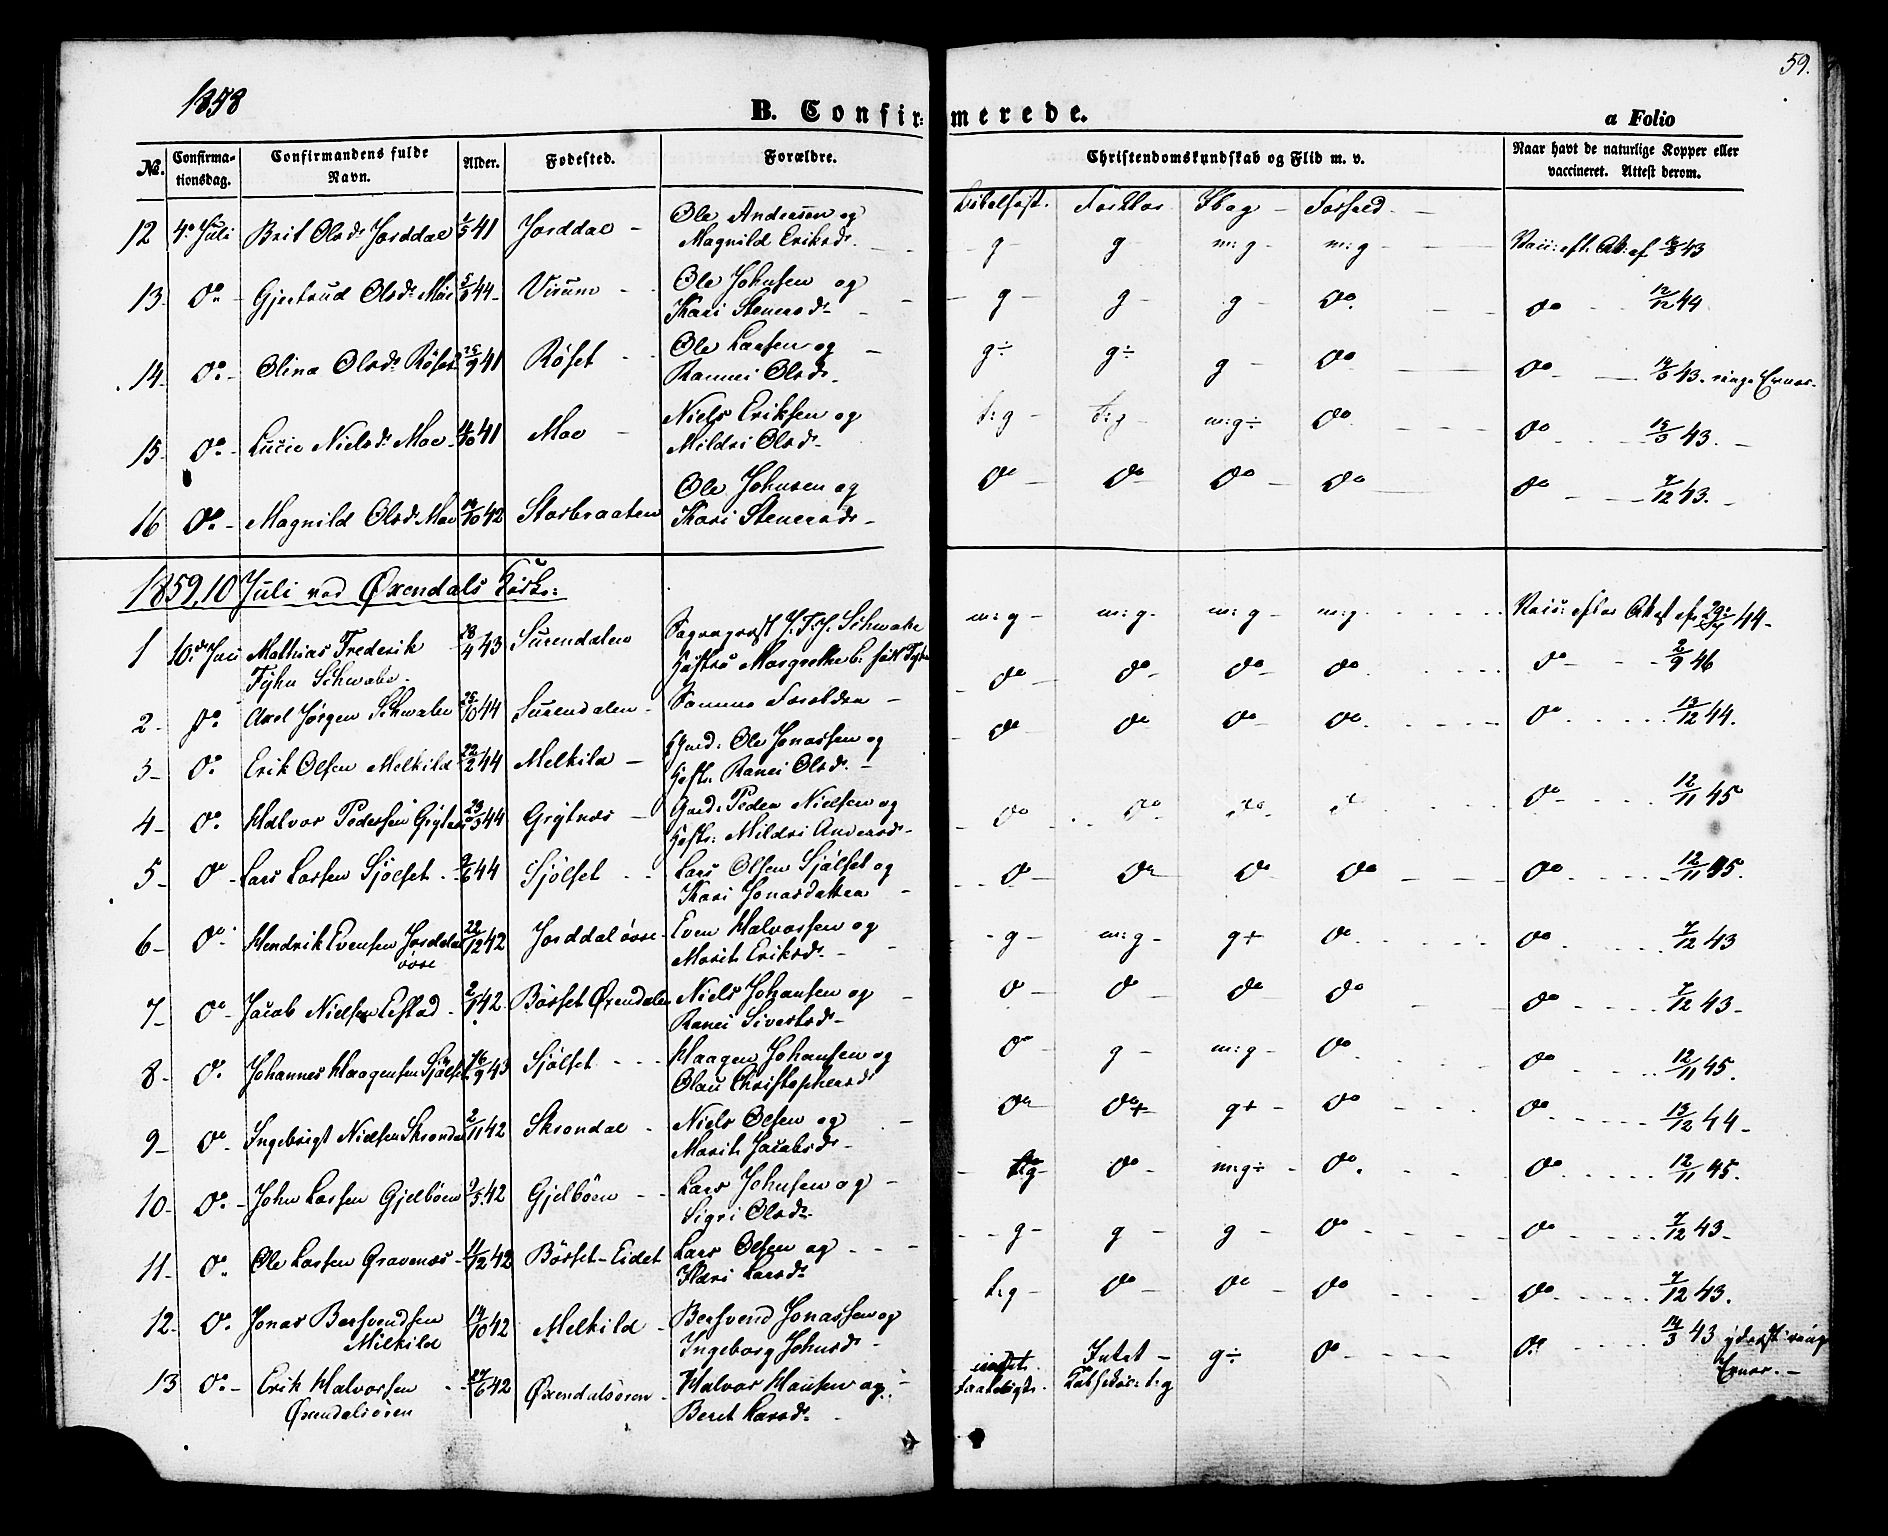 1858
B. Confirmerede.
59.
a Folio
No. Confirmationsdag. Confirmandens fulde Navn. Alder. Fødested. Forældre. Christendomskundskab og Flid m. v. Naar havt de naturlige Kopper eller vaccineret. Attest derom.
Forhold
12 4de Juli Brit Olsdr Jorddal 41 Jorddal – Ole Andersen og
Magnild Eriksdr. g – g m:g – m:g 43
13 Do – Gjertrud Olsdr Moe 44 Ole Johnsen og
Kari Stenersdr – g – g – g – Do Do 12/12 44
14 Do – Olina Olsdr Røset 41 Røset Ole Larsen og
Rannei Olsdr. g÷ g÷ g – Do Do 43. ringe
15 Do – Lucie Nielsdr Moe 41 Moe – Niels Eriksen og
Mildri Olsdr t:g – t:g – m:g÷ Do Do 43. –
16 Do – Magnild Olsdr Moe 42 Storbraaten Ole Johnsen og
Kari Stenersdr – Do – Do – Do – Do Do 7/12 43. –
1859, 10 Juli ved Øxendals Kirke:
1 10de Juli Mathias Frederik 28/4 43 Surendalen Schwabe
Schwabe. m:g – m:g – m:g – m:g 44 –
2 – Do Axel Jørgen Schwabe 26/10 44 Surendalen – Samme Forældre – Do – Do – Do – Do Do 46
3 – Do Erik Olsen Melkild 22/2 44 Melkild – Gmd: Ole Jonassen og
Hustr: Ranei Olsdr. – Do Do Do – Do Do 13/12 44.
4 – Do Halvor Pedersen Grytnes 44 Grytnæs – Gmd: Peder Nielsen og
Hustr: Mildri Andersdr – Do Do Do Do 12/11 45
5 – Do – Lars Larsen Sjølset 44 Sjølset Lars Olsen Sjølset og
Kari Jonasdatter – Do – Do Do – Do – Do 12/11 45.
6 – Do Hendrik Evensen Jorddal
øvre 22/12 42 Jorddal øvre – Even Halvorsen og
Marit Eriksdr. – g – m:g – g+ Do Do 7/12 43
7 – Do – Jacob Nielsen 42 Børset Øxendalen Niels Johansen og
Ranei Sivertsdr – Do – Do – Do Do Do 7/12 43 –
8 – Do Johannes Haagensen Sjølset 16/9 43 Sjølset Haagen Johansen og
Olau Christophersdr Do – g – m:g – Do Do 12/11 45.
9 – Do Ingebrigt Nielsen Skrondal 2/11 42 Skrondal – Niels Olsen og
Marit Jacobsdr – Do Do+ g+ – Do Do 13/12 44 –
10 – Do – John Larsen Gjelbøen 42 Gjelbøen Lars Johnsen og –
Sigri Olsdr Do – m:g÷ – Do. Do 12/11 45.
11 – Do. Ole Larsen Gravenæs – 42 Børset-Eidet Lars Olsen og
Kari Larsdr – g – g – g – Do Do 7/12 43 –
12 – Do. Jonas Bersvendsen
Milkild 14/10 42 Melkild – Bersvend Jonassen og
Ingeborg Johnsdr – t:g – Do – Do – Do Do 7/12 43.
13 Do – Erik Halvorsen
Øxendalsøren 42 Øxendalsøren – Halvor Hansen og
Beret Larsdr – Intet – g÷ Do Do 14/3 43 yderst ringe